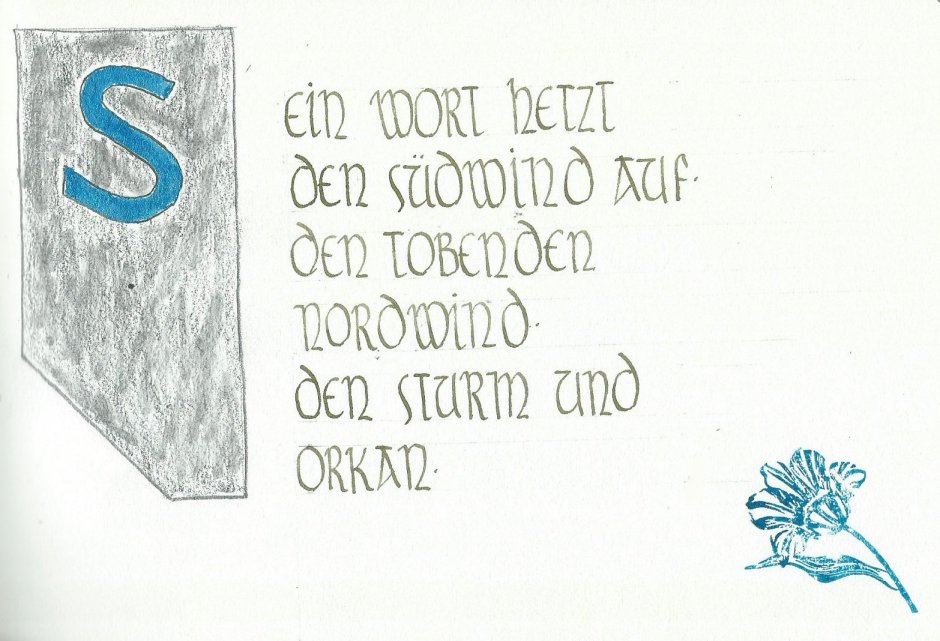 S
EIN WORT HETZT
DEN SÜDWIND AUF.
DEN TOBENDEN
NORDWIND.
DEN STURM UND
ORKAN.